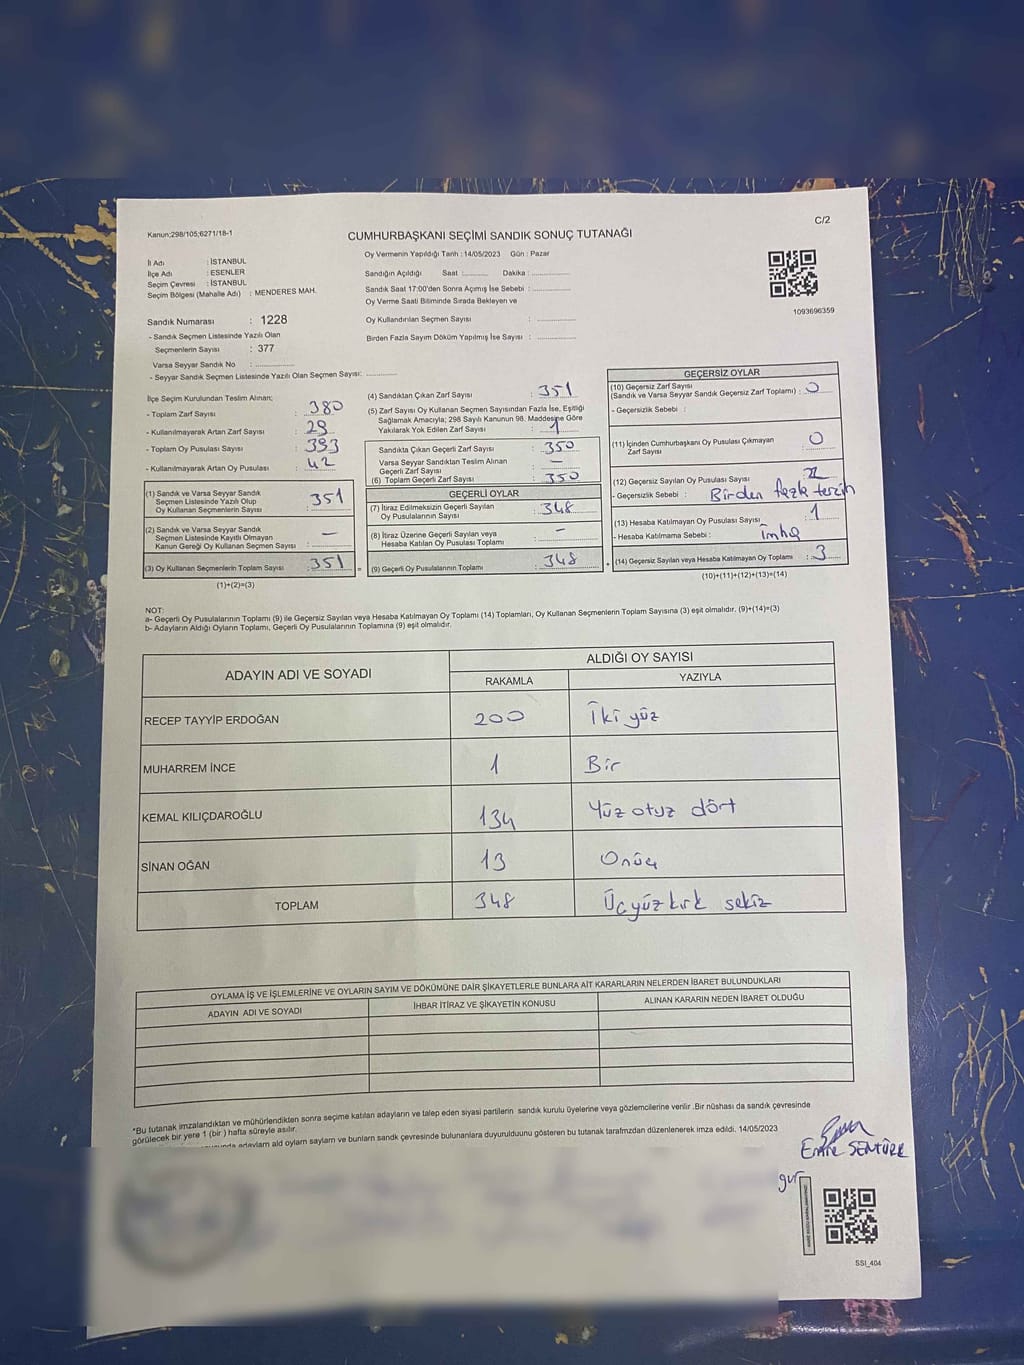 C/2
Kanun;298/105;6271/18-1
CUMHURBAŞKANI SEÇİMİ SANDIK SONUÇ TUTANAĞI
İl Adı : İSTANBUL
İlçe Adı : ESENLER
Seçim Çevresi : İSTANBUL
Seçim Bölgesi (Mahalle Adı) : MENDERES MAH.
Sandık Numarası : 1228
- Sandık Seçmen Listesinde Yazılı Olan
Seçmenlerin Sayısı : 377
Varsa Seyyar Sandık No :
- Seyyar Sandık Seçmen Listesinde Yazılı Olan Seçmen Sayısı:
Oy Vermenin Yapıldığı Tarih : 14/05/2023 Gün : Pazar
Sandığın Açıldığı Saat : Dakika :
Sandık Saat 17:00'den Sonra Açımış İse Sebebi :
Oy Verme Saati Bitiminde Sırada Bekleyen ve
Oy Kullandırılan Seçmen Sayısı :
Birden Fazla Sayım Döküm Yapılmış İse Sayısı :
1093696359
İlçe Seçim Kurulundan Teslim Alınan;
- Toplam Zarf Sayısı : 380
- Kullanılmayarak Artan Zarf Sayısı : 29
- Toplam Oy Pusulası Sayısı : 393
- Kullanılmayarak Artan Oy Pusulası : 42
(1) Sandık ve Varsa Seyyar Sandık
Seçmen Listesinde Yazılı Olup
Oy Kullanan Seçmenlerin Sayısı : 351
(2) Sandık ve Varsa Seyyar Sandık
Seçmen Listesinde Kayıtlı Olmayan
Kanun Gereği Oy Kullanan Seçmen Sayısı : -
(3) Oy Kullanan Seçmenlerin Toplam Sayısı : 351
(1)+(2)=(3)
(4) Sandıktan Çıkan Zarf Sayısı : 351
(5) Zarf Sayısı Oy Kullanan Seçmen Sayısından Fazla İse, Eşitliği
Sağlamak Amacıyla; 298 Sayılı Kanunun 98. Maddesine Göre
Yakılarak Yok Edilen Zarf Sayısı : 1
Sandıkta Çıkan Geçerli Zarf Sayısı : 350
Varsa Seyyar Sandıktan Teslim Alınan
Geçerli Zarf Sayısı : -
(6) Toplam Geçerli Zarf Sayısı : 350
GEÇERLİ OYLAR
(7) İtiraz Edilmeksizin Geçerli Sayılan
Oy Pusulalarının Sayısı : 348
(8) İtiraz Üzerine Geçerli Sayılan veya
Hesaba Katılan Oy Pusulası Toplamı : -
(9) Geçerli Oy Pusulalarının Toplamı : 348
GEÇERSİZ OYLAR
(10) Geçersiz Zarf Sayısı
(Sandık ve Varsa Seyyar Sandık Geçersiz Zarf Toplamı) : 0
- Geçersizlik Sebebi :
(11) İçinden Cumhurbaşkanı Oy Pusulası Çıkmayan
Zarf Sayısı : 0
(12) Geçersiz Sayılan Oy Pusulası Sayısı : 2
- Geçersizlik Sebebi : Birden fazla tercih
(13) Hesaba Katılmayan Oy Pusulası Sayısı : 1
- Hesaba Katılmama Sebebi : imha
(14) Geçersiz Sayılan veya Hesaba Katılmayan Oy Toplamı : 3
(10)+(11)+(12)+(13)=(14)
NOT:
a- Geçerli Oy Pusulalarının Toplamı (9) ile Geçersiz Sayılan veya Hesaba Katılmayan Oy Toplamı (14) Toplamları, Oy Kullanan Seçmenlerin Toplam Sayısına (3) eşit olmalıdır. (9)+(14)=(3)
b- Adayların Aldığı Oyların Toplamı, Geçerli Oy Pusulalarının Toplamına (9) eşit olmalıdır.
ADAYIN ADI VE SOYADI
ALDIĞI OY SAYISI
RAKAMLA YAZIYLA
RECEP TAYYİP ERDOĞAN 200 İki yüz
MUHARREM İNCE 1 Bir
KEMAL KILIÇDAROĞLU 134 Yüz otuz dört
SİNAN OĞAN 13 Onüç
TOPLAM 348 Üçyüz kırk sekiz
OYLAMA İŞ VE İŞLEMLERİNE VE OYLARIN SAYIM VE DÖKÜMÜNE DAİR ŞİKAYETLERLE BUNLARA AİT KARARLARIN NELERDEN İBARET BULUNDUKLARI
ADAYIN ADI VE SOYADI İHBAR İTİRAZ VE ŞİKAYETİN KONUSU ALINAN KARARIN NEDEN İBARET OLDUĞU
*Bu tutanak imzalandıktan ve mühürlendikten sonra seçime katılan adayların ve talep eden siyasi partilerin sandık kurulu üyelerine veya gözlemcilerine verilir .Bir nüshası da sandık çevresinde
görülecek bir yere 1 (bir ) hafta süreyle asılır.
adayların ald oyların sayların ve bunların sandk çevresinde bulunanlara duyurulduunu gösteren bu tutanak tarafmzdan düzenlenerek imza edildi. 14/05/2023
Emre ŞENTÜRK
SSI_404